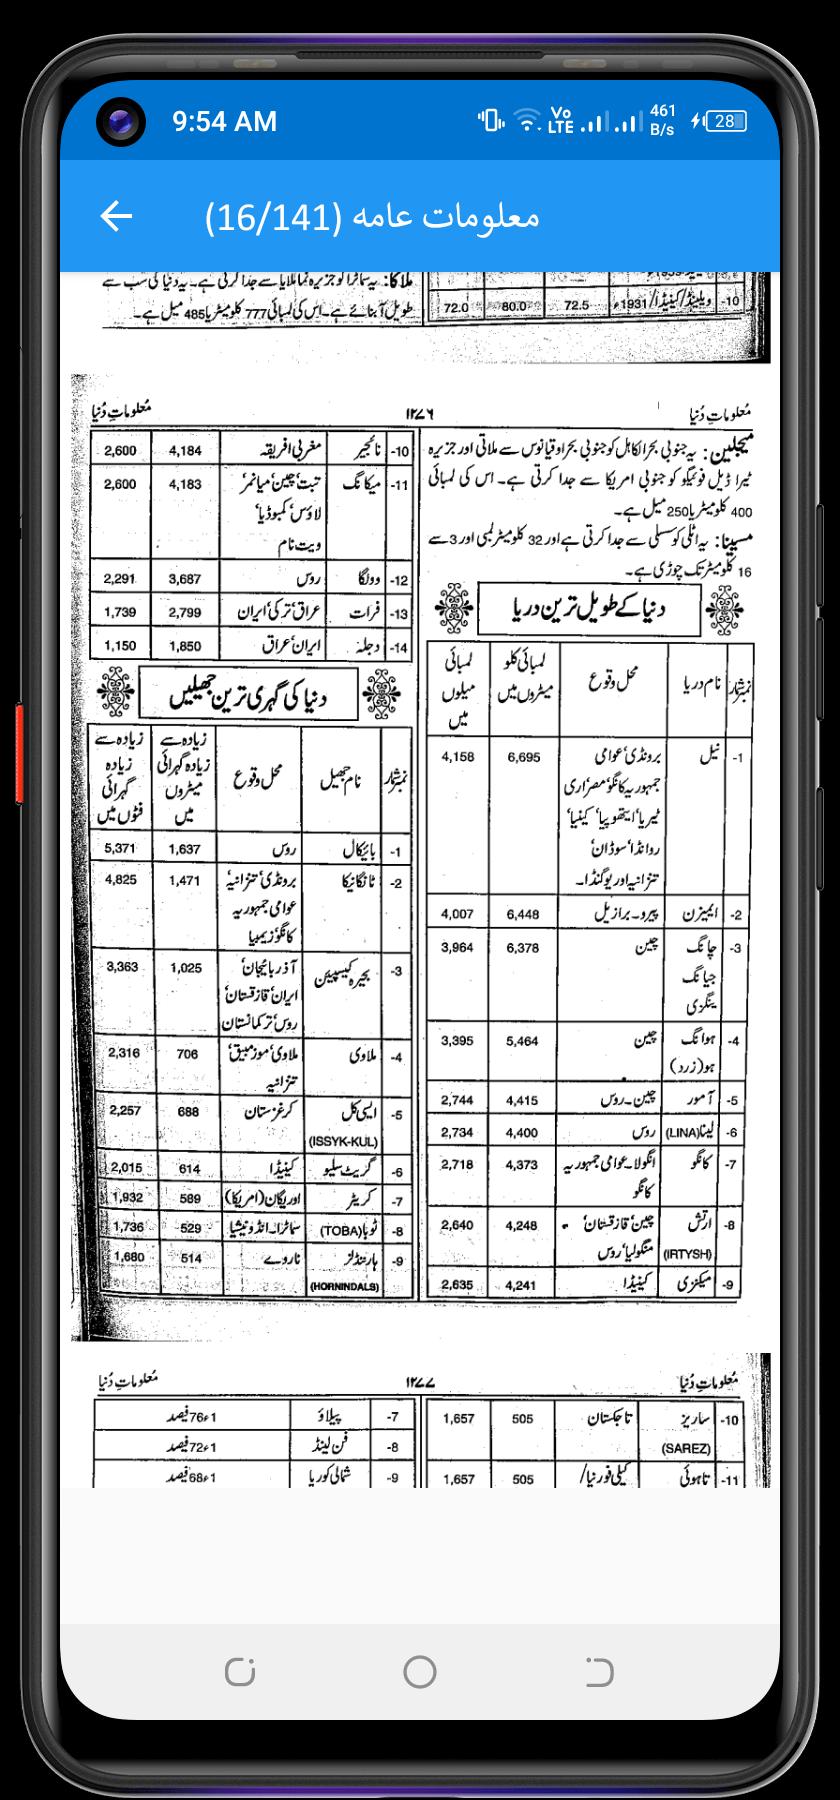 9:54 AM
Vo LTE
461 B/s
28
معلومات عامه (16/141)
-10 ویلینڈ/کینیڈا/1931ء 72.5 80.0 72.0
ملاکا: یہ سماٹرا کو جزیرہ نما ملایا سے جدا کرتی ہے۔ یہ دنیا کی سب سے
طویل آبنائے ہے۔ اس کی لمبائی 777 کلومیٹر یا 485 میل ہے۔
معلوماتِ دُنیا
۱۲۷۶
معلوماتِ دُنیا
میجلین: یہ جنوبی بحرالکاہل کو جنوبی بحراوقیانوس سے ملاتی اور جزیرہ
ٹیرا ڈیل فوئیگو کو جنوبی امریکا سے جدا کرتی ہے۔ اس کی لمبائی
400 کلومیٹر یا 250 میل ہے۔
مسینا: یہ اٹلی کو سسلی سے جدا کرتی ہے اور 32 کلومیٹر لمبی اور 3 سے
16 کلومیٹر تک چوڑی ہے۔
دنیا کے طویل ترین دریا
نمبر شمار نام دریا محل وقوع لمبائی کلو میٹروں میں لمبائی میلوں میں
-1 نیل برونڈی، عوامی 6,695 4,158
جمہوریہ کانگو، مصر، اری
ٹیریا، ایتھوپیا، کینیا،
روانڈا، سوڈان،
تنزانیہ اور یوگنڈا۔
-2 ایمیزن پیرو۔ برازیل 6,448 4,007
-3 چانگ چین 6,378 3,964
جیانگ
ینگزی
-4 ہوانگ چین 5,464 3,395
ہو (زرد)
-5 آمور چین۔ روس 4,415 2,744
-6 لینا (LINA) روس 4,400 2,734
-7 کانگو انگولا۔ عوامی جمہوریہ 4,373 2,718
کانگو
-8 ارتش چین، قازقستان، 4,248 2,640
(IRTYSH) منگولیا، روس
-9 میکنزی کینیڈا 4,241 2,635
-10 نائجیر مغربی افریقہ 4,184 2,600
-11 میکانگ تبت، چین، میانمر، 4,183 2,600
لاؤس، کمبوڈیا،
ویت نام
-12 وولگا روس 3,687 2,291
-13 فرات عراق، ترکی، ایران 2,799 1,739
-14 دجلہ ایران، عراق 1,850 1,150
دنیا کی گہری ترین جھیلیں
نمبر شمار نام جھیل محل وقوع زیادہ سے زیادہ گہرائی میٹروں میں زیادہ سے زیادہ گہرائی فٹوں میں
-1 بائیکال روس 1,637 5,371
-2 ٹانگانیکا برونڈی، تنزانیہ، 1,471 4,825
عوامی جمہوریہ
کانگو، زیمبیا
-3 بحیرہ کیسپیئن آذربائیجان، 1,025 3,363
ایران، قازقستان،
روس، ترکمانستان
-4 ملاوی ملاوی، موزمبیق، 706 2,316
تنزانیہ
-5 ایسی کل کرغزستان 688 2,257
(ISSYK-KUL)
-6 گریٹ سلیو کینیڈا 614 2,015
-7 کریٹر اوریگان (امریکا) 589 1,932
-8 ٹوبا (TOBA) سماٹرا۔ انڈونیشیا 529 1,736
-9 ہارننڈلز ناروے 514 1,680
(HORNINDALS)
معلوماتِ دُنیا
۱۲۷۷
معلوماتِ دُنیا
-10 ساریز تاجکستان 505 1,657
(SAREZ)
-11 تاہوئی کیلی فورنیا/ 505 1,657
-7 پیلاؤ 1ء76 فیصد
-8 فن لینڈ 1ء72 فیصد
-9 شمالی کوریا 1ء68 فیصد